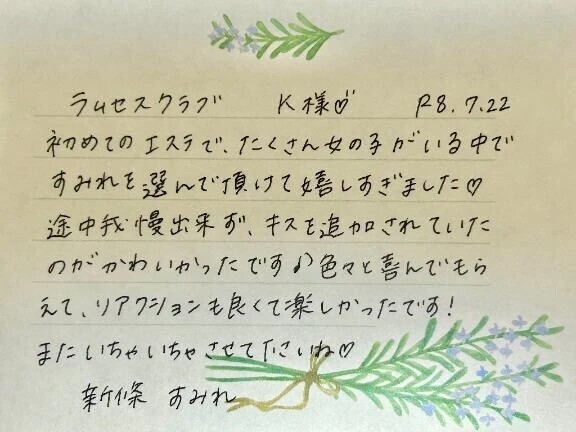 ラムセスクラブ K様♡ R8.7.22
初めてのエステで、たくさん女の子がいる中で
すみれを選んで頂けて嬉しすぎました♡
途中我慢出来ず、キスを追加されていた
のがかわいかったです♪色々と喜んでもら
えて、リアクションも良くて楽しかったです!
またいちゃいちゃさせて下さいね♡
新條 すみれ